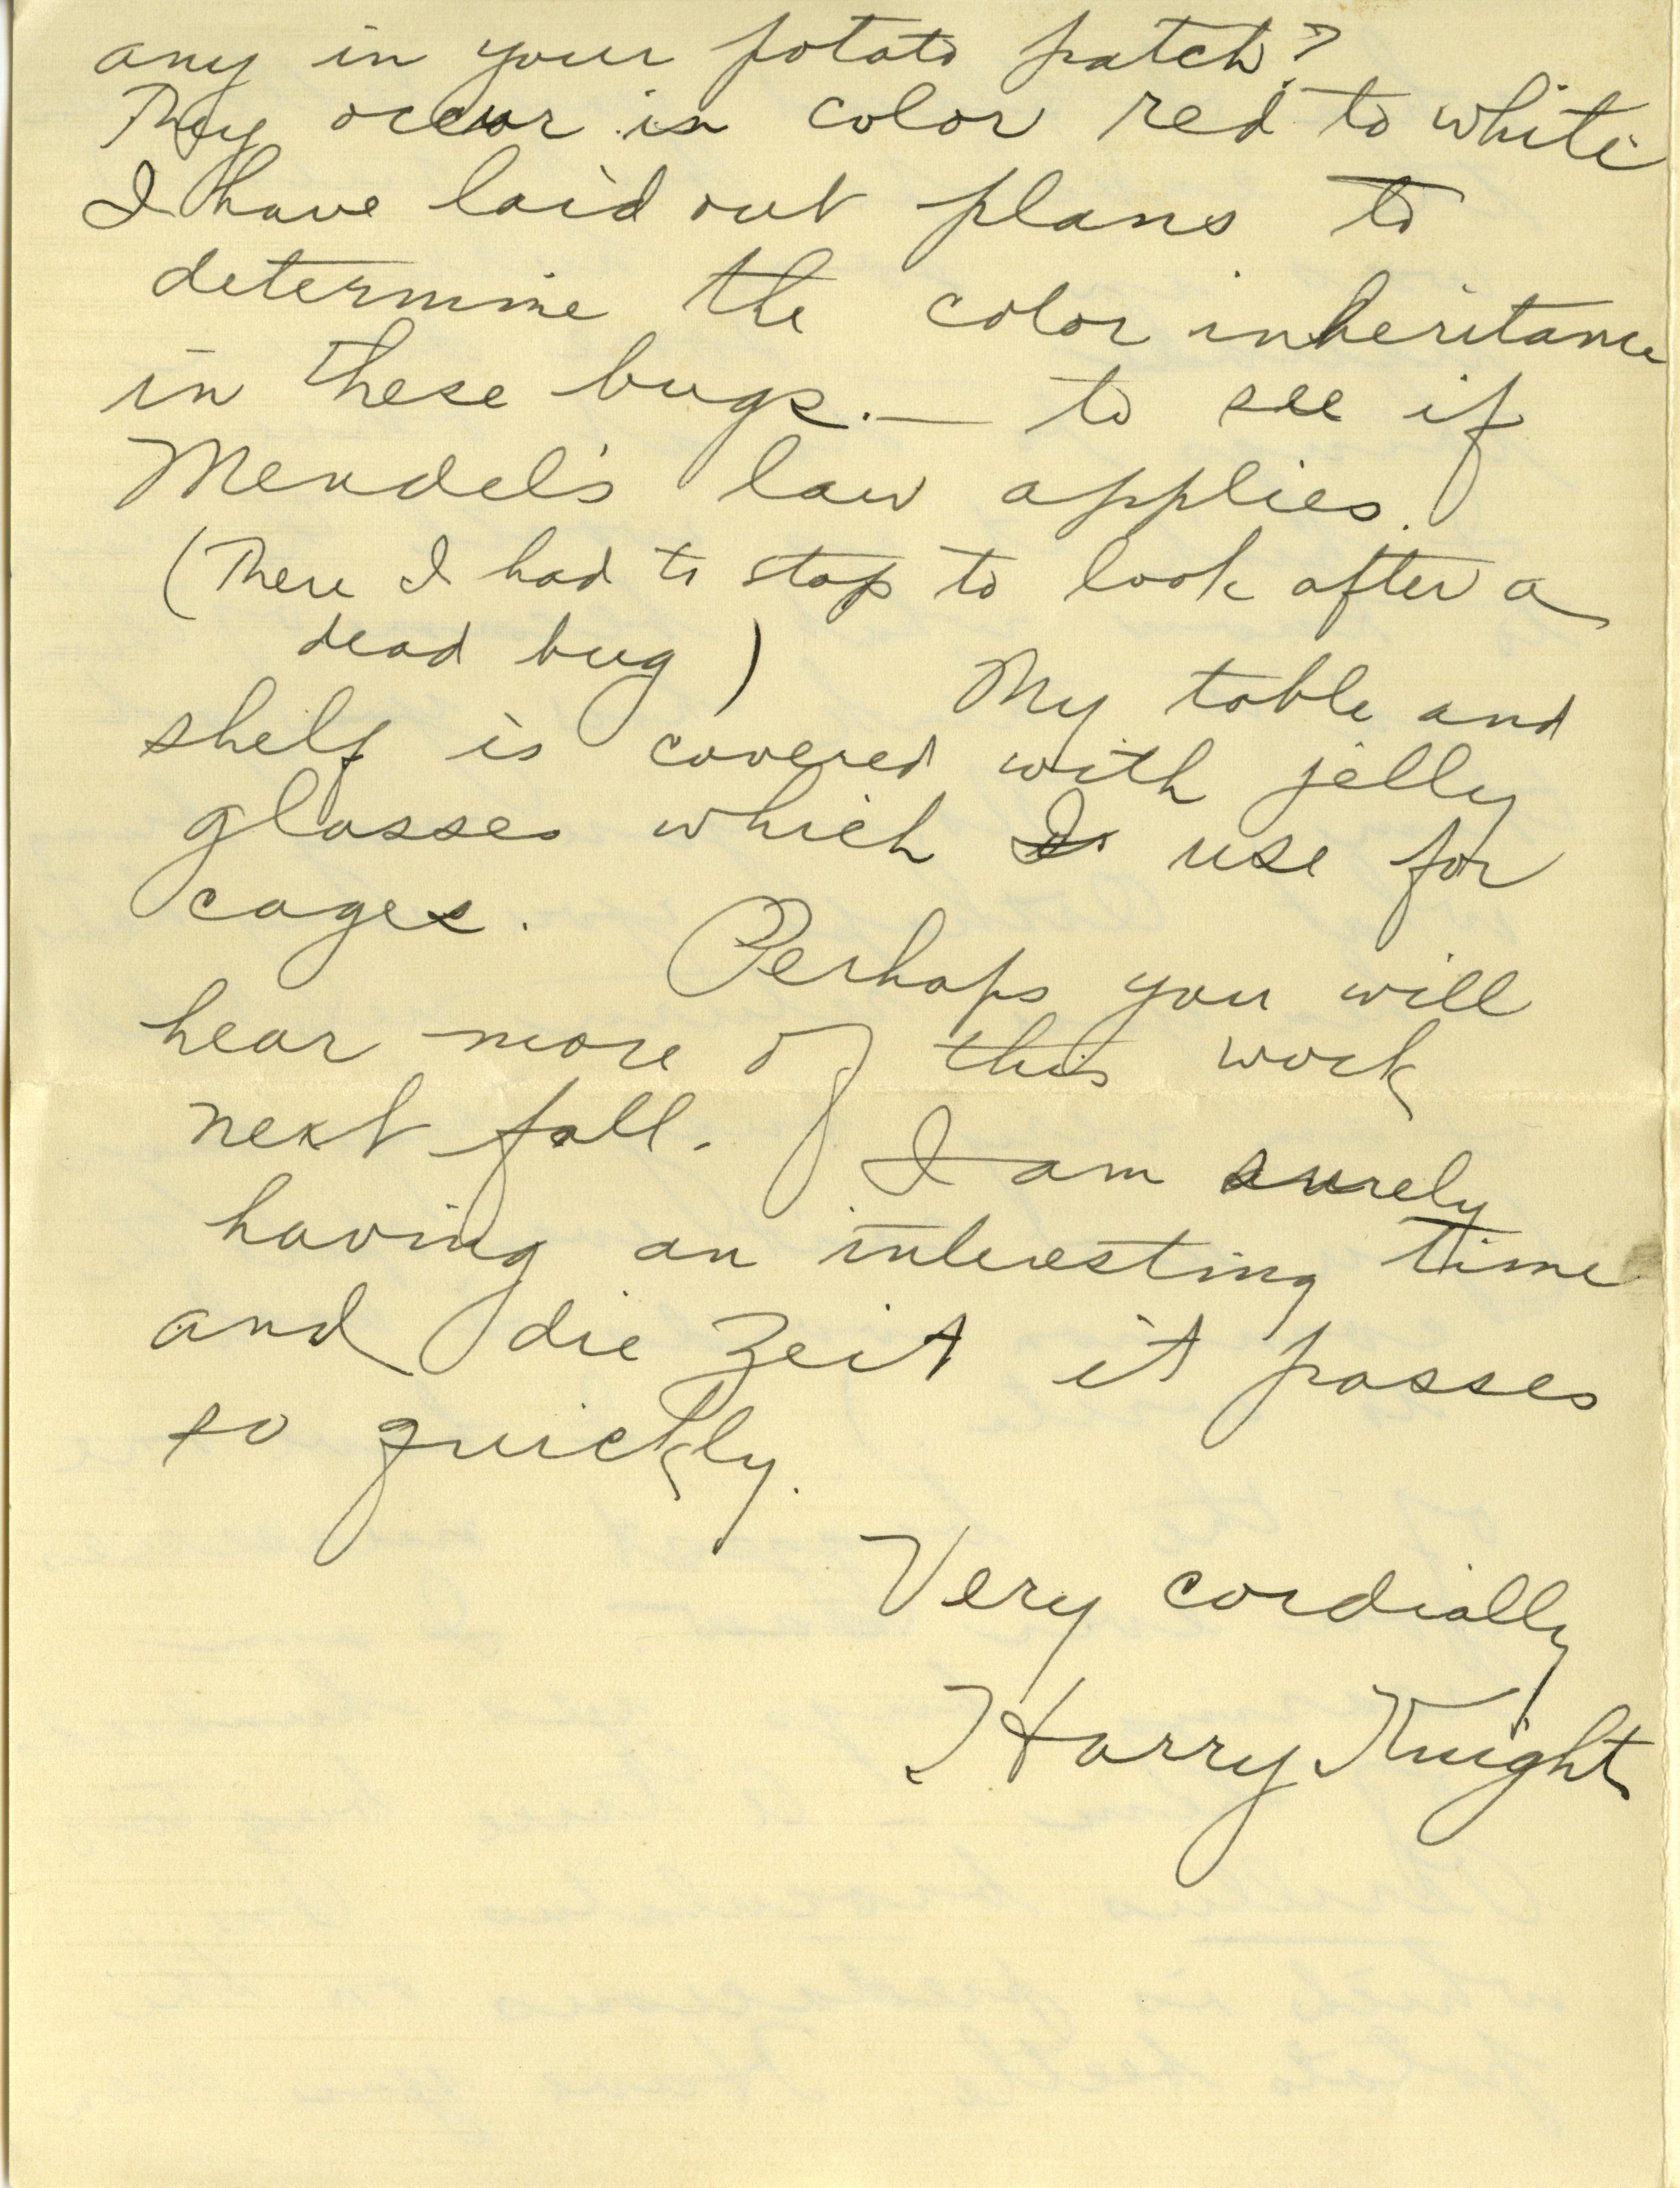 any in your potato patch?
They occur in color red to white
I have laid out plans to
determine the color inheritance
in these bugs. — to see if
Mendel's law applies.
(There I had to stop to look after a
dead bug) My table and
shelf is covered with jelly
glasses which I use for
cages. Perhaps you will
hear more of this work
next fall. I am surely
having an interesting time
and die Zeit it passes
so quickly.
Very cordially
Harry Knight